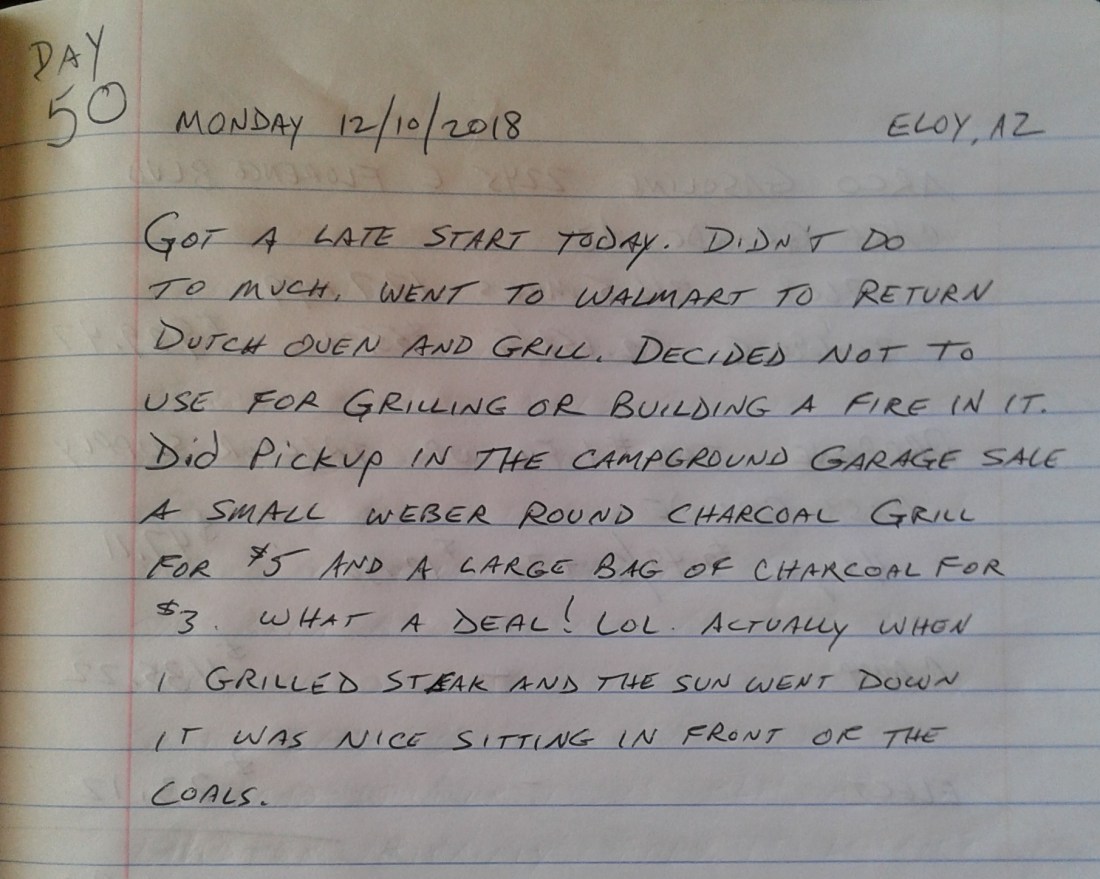 DAY
50
MONDAY 12/10/2018 ELOY, AZ
GOT A LATE START TODAY. DIDN'T DO
TO MUCH. WENT TO WALMART TO RETURN
DUTCH OVEN AND GRILL. DECIDED NOT TO
USE FOR GRILLING OR BUILDING A FIRE IN IT.
Did Pickup IN THE CAMPGROUND GARAGE SALE
A SMALL WEBER ROUND CHARCOAL GRILL
FOR $5 AND A LARGE BAG OF CHARCOAL FOR
$3. WHAT A DEAL! LOL. ACTUALLY WHEN
I GRILLED STEAK AND THE SUN WENT DOWN
IT WAS NICE SITTING IN FRONT OF THE
COALS.